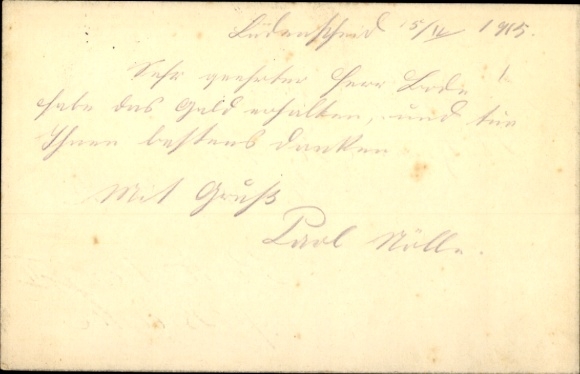 Lüdenscheid 5/IV 1915.
Sehr geehrter Herr Bode!
habe das Geld erhalten, und tue
Ihnen bestens danken
Mit Gruß
Carl Nölle.